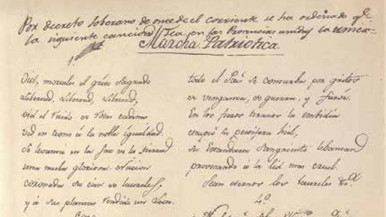 Por decreto soberano de once del corriente se ha ordenado qe.
la siguiente cancion sea en las Provincias unidas la unica
Marcha Patriotica
Oid, mortales el grito Sagrado
Libertad, Libertad, Libertad,
oid el ruido de rotas cadenas
ved en trono à la noble igualdad.
Se levanta en la faz de la tierra
una nueva gloriosa Nacion
coronada su cien de laureles,
y à sus plantas rendido un Leon.
todo el Pais se conturba por gritos
de venganza, de guerra, y furor.
En los fieros tiranos la embidia
escupió la pestifera hiel,
su estandarte sangriento lebantan
provocando à la lid mas cruel.
Sean eternos los laureles &a.
4º